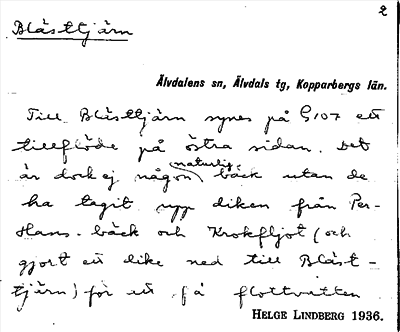 2
Blästtjärn
Älvdalens sn, Älvdals tg, Kopparbergs län.
Till Blästtjärn synes på G107 ett
tillflöde på östra sidan. Det
är dock ej någon naturlig bäck utan de
ha tagit upp diken från Per-
Hans-bäck och Krokfljot (och
gjort ett dike ned till Bläst-
tjärn) för att få flottvatten
HELGE LINDBERG 1936.